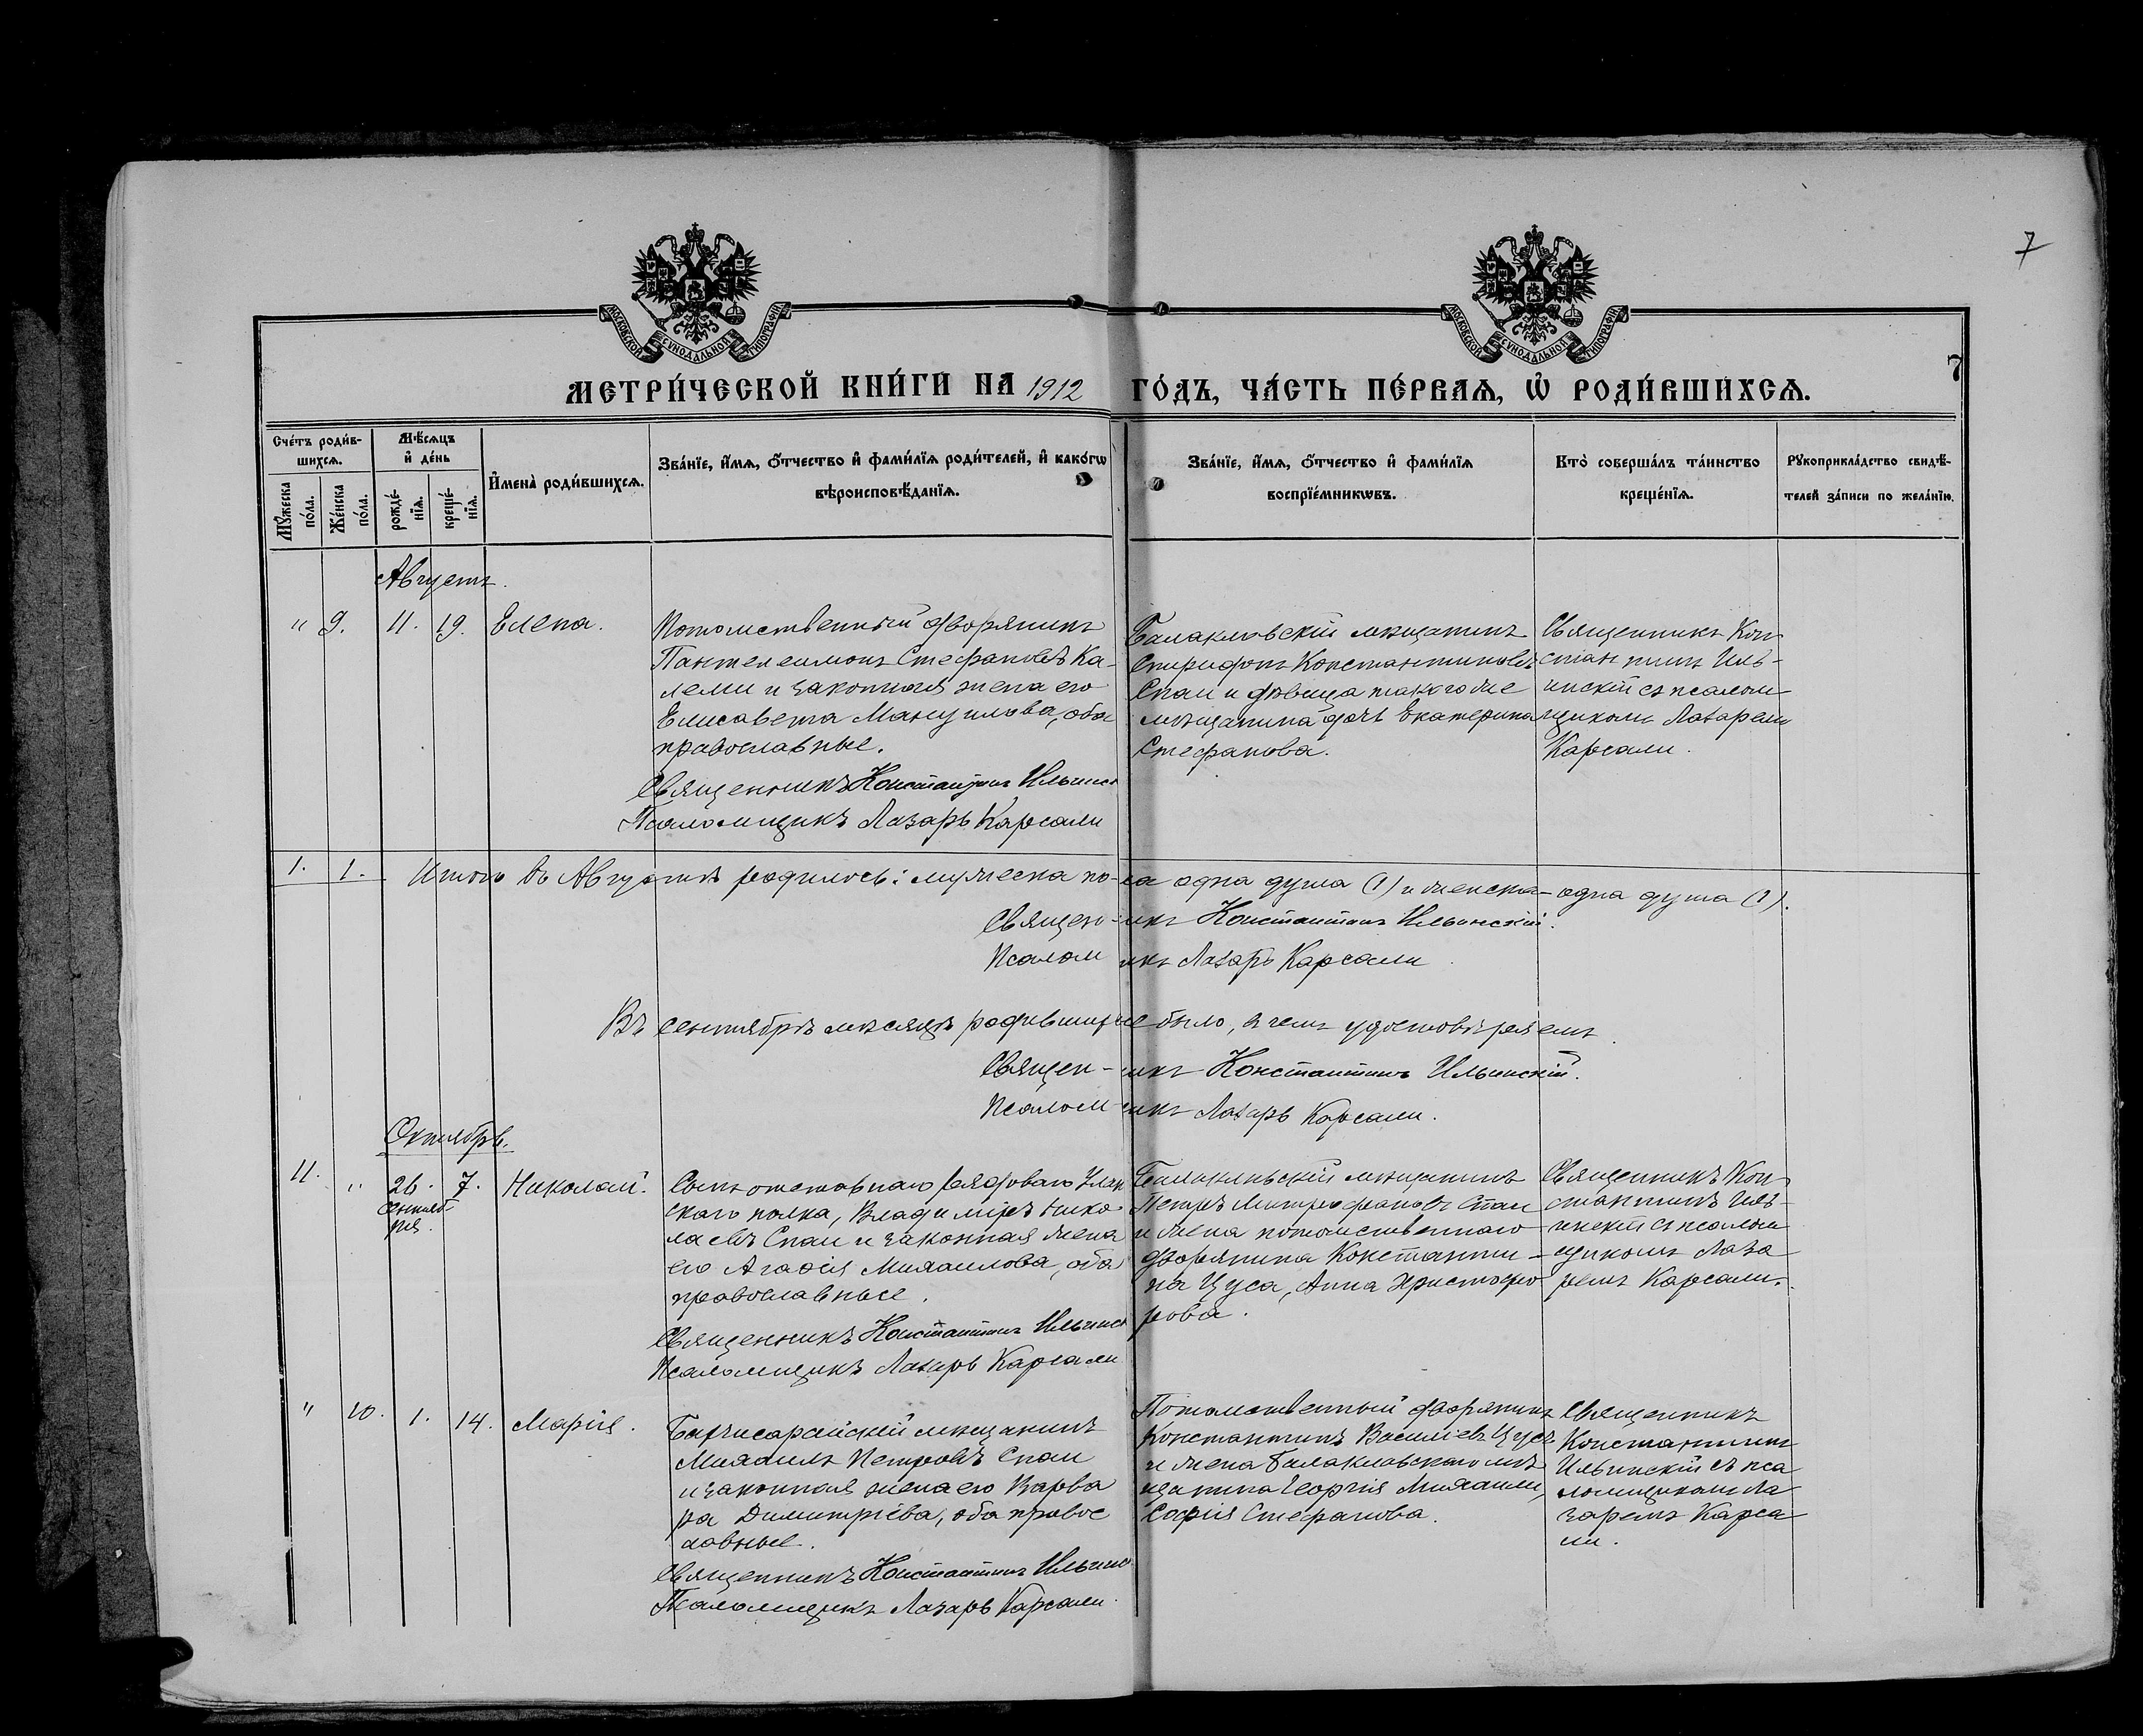 7
МОСКОВСКОЙ СѴНОДАЛЬНОЙ ТИПОГРАФІИ
МОСКОВСКОЙ СѴНОДАЛЬНОЙ ТИПОГРАФІИ
7
МЕТРИ́ЧЕСКОЙ КНИ́ГИ НА 1912 ГО́ДЪ, ЧА́СТЬ ПЕ́РВАѦ, Ѡ҆ РОДИ́ВШИХСѦ.
Сче́тъ роди́в-
шихсѧ.
Мꙋ́жеска по́ла.
Же́нска по́ла.
Мѣ́сѧцъ и҆ де́нь
рожде́-нїѧ.
креще́-нїѧ.
И҆мена̀ роди́вшихсѧ.
Зва́нїе, и҆́мѧ, ѻ҆́тчество и҆ фами́лїѧ роди́телей, и҆ како́гѡ
вѣроисповѣ́данїѧ.
Зва́нїе, и҆́мѧ, ѻ҆́тчество и҆ фами́лїѧ
воспрїе́мникѡвъ.
Кто̀ соверша́лъ та́инство
креще́нїѧ.
Рꙋкоприкла́дство свидѣ́-
телей за́писи по жела́нїю.
Августъ.
" 9. 11. 19. Елена.
Потомственный дворянинъ
Пантелеимонъ Стефановъ Ка-
леми и законная жена его
Елисавета Мануилова, оба
православные.
Священникъ Константинъ Ильинск
Псаломщикъ Лазарь Карсали
Балаклавскій мещанинъ
Спиридонъ Константиновъ
Спаи и девица такого же
мещанина дочь Екатерина
Стефанова.
Священникъ Кон
стантинъ Иль-
инскій съ псалом
щикомъ Лазаремъ
Карсали.
1. 1. Итого въ Августѣ родилось: мужеска по-ла одна душа (1) и женска - одна душа (1).
Священ-икъ Константинъ Ильинскій.
Псалом икъ Лазарь Карсали.
Въ сентябрѣ мѣсяцѣ родившихся не было, въ чемъ удостовѣряемъ.
Священ-икъ Константинъ Ильинскій.
Псалом-икъ Лазарь Карсали.
Октябрь.
11. " 26. сентяб ря. 7. Николай.
Сынъ отставнаго рядоваго Улан
скаго полка, Владиміръ Нико
лаевъ Спаи и законная жена
его Агафія Михаилова, оба
православные.
Священникъ Константинъ Ильинск
Псаломщикъ Лазарь Карсали
Балаклавскій мещанинъ
Петръ Митрофановъ Спаи
и жена потомственнаго
дворянина Константи-
на Цуса, Анна Христофо
рова.
Священникъ Кон
стантинъ Иль-
инскій съ псалом
щикомъ Лаза
ремъ Карсали.
" 10. 1. 14. Марія.
Бахчисарайскій мещанинъ
Михаилъ Петровъ Спаи
и законная жена его Варва
ра Димитріева, оба правос
лавные.
Священникъ Константинъ Ильинс
Псаломщикъ Лазарь Карсали.
Потомственный дворянинъ
Константинъ Василіевъ Цусъ
и жена Балаклавскаго ме
щанина Георгія Михаили,
Софія Стефанова.
Священникъ
Константинъ
Ильинскій съ пса
ломщикомъ Ла
заремъ Карса
ли.